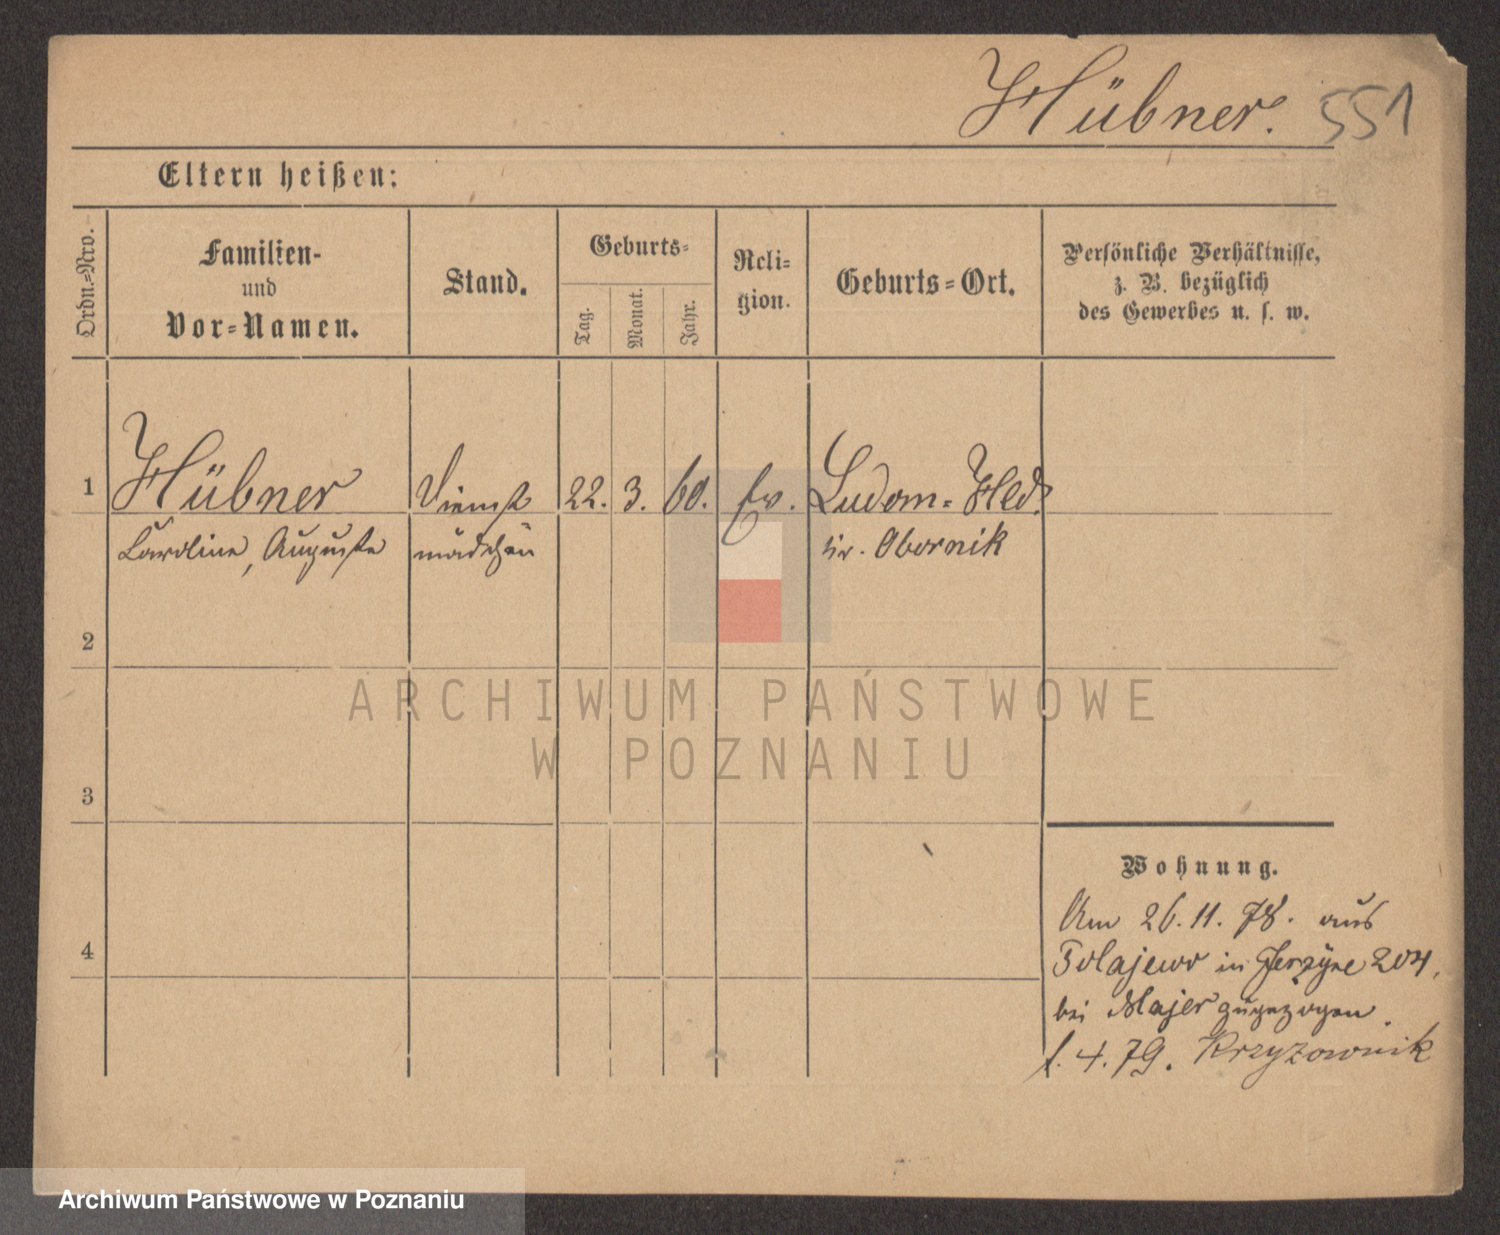 Hübner. 551
Eltern heißen:
Ordn.-Nro.
Familien-
und
Vor-Namen.
Stand.
Geburts-
Tag.
Monat.
Jahr.
Reli-
gion.
Geburts-Ort.
Persönliche Verhältnisse,
z. B. bezüglich
des Gewerbes u. s. w.
1 Hübner Dienst 22. 3. 60. ev. Ludom-Hld.
Caroline, Auguste mädchen Kr. Obornik
2
3
4
Wohnung.
Am 26.11.78. aus
Polajewo in Jerzyce 204,
bei Majer zugezogen.
1.4.79. Krzyzownik
ARCHIWUM PAŃSTWOWE
W POZNANIU
Archiwum Państwowe w Poznaniu